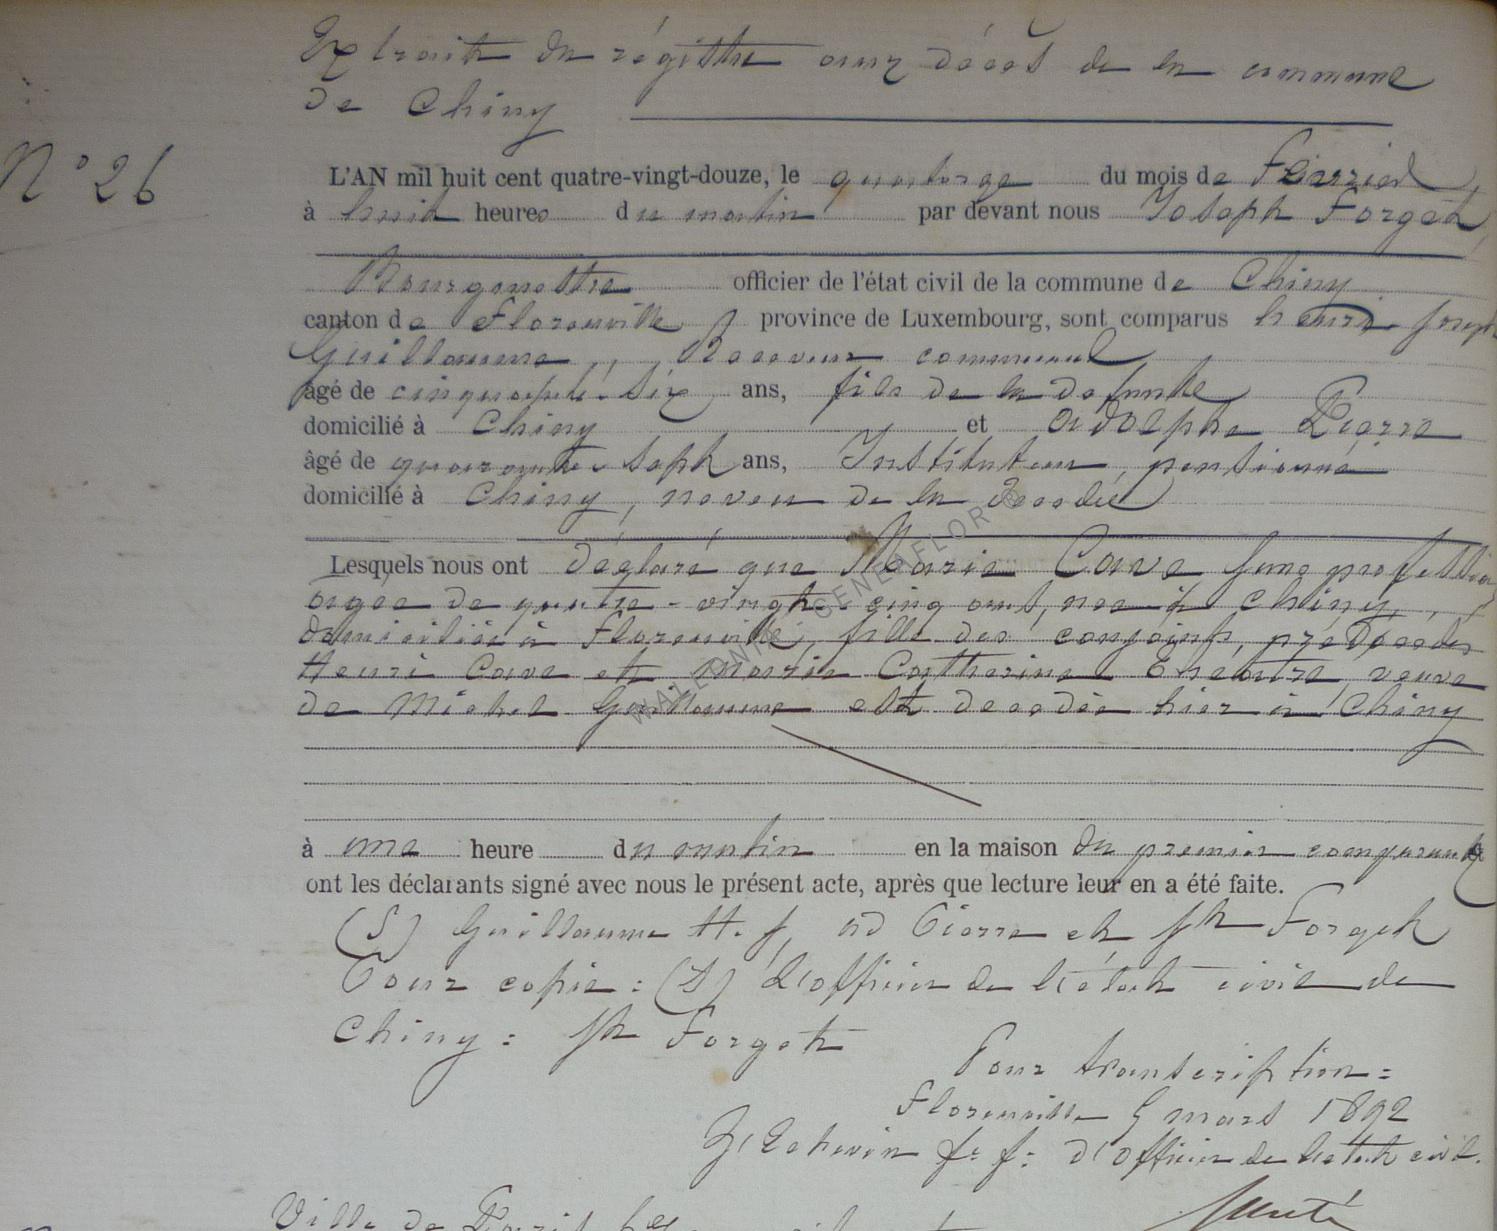 Extrait du régistre aux décès de la commune
de Chiny
N° 26
L'AN mil huit cent quatre-vingt-douze, le quatorze du mois de Février
à huit heures du matin par devant nous Joseph Forget,
Bourgmestre officier de l'état civil de la commune de Chiny
canton de Florenville province de Luxembourg, sont comparus henri Joseph
Guillaume, Receveur communal
âgé de cinquante-six ans, fils de la defunte
domicilié à Chiny et Adolphe Pierre
âgé de quarante-sept ans, Instituteur pensionné
domicilié à Chiny, neveu de la
Lesquels nous ont déclaré que Marie Cave sans profession
agée de quatre-vingt-cinq ans, née à Chiny,
domiciliée à Florenville, fille des conjoints, prédécédés
Henri Cave et Marie Catherine veuve
de Michel Guillaume est decedée hier à Chiny
à une heure du matin en la maison du premier comparant
ont les déclarants signé avec nous le présent acte, après que lecture leur en a été faite.
(S) Guillaume H. J, ad Pierre et Jh Forget
Pour copie : (S) L'officier de l'état civil de
Chiny : Jh Forget
Pour transcription =
Florenville 5 mars 1892
L'Echevin ff: d'officier de l'état civil.
Ville de
WALLONIE GENEAFLOR